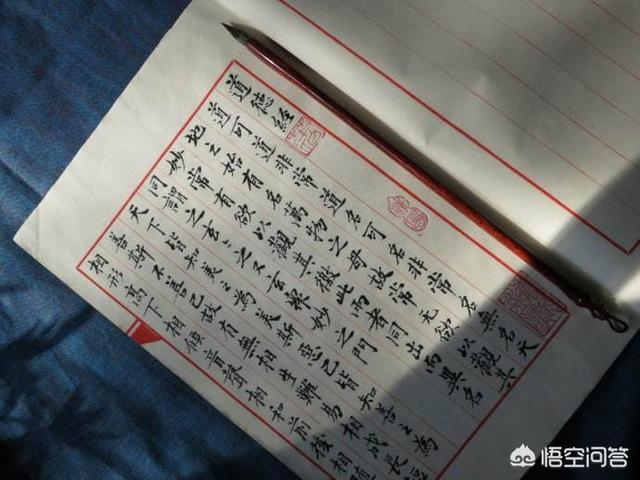 道德经
道可道非常道名可名非常名無名天
地之始有名萬物之母故常无欲以觀其
妙常有欲以觀其徼此兩者同出而異名
同謂之玄〻之又玄衆妙之門
天下皆知美之為美斯惡已皆知善之為
善斯不善已故有無相生難易相成長
相形高下相傾音聲相和前後相隨
悟空问答